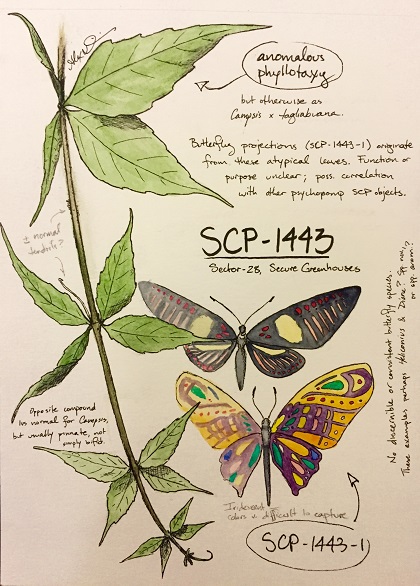 anomalous
phyllotaxy
but otherwise as
Campsis x tagliabuana.
Butterfly projections (SCP-1443-1) originate
from these atypical leaves. Function or
purpose unclear; poss. correlation
with other psychopomp SCP objects.
normal
tendrils?
SCP-1443
Sector-28, Secure Greenhouses
No discernible or consistent butterfly species.
These examples perhaps Heliconius &
or anom.?
Opposite compound
lvs normal for Campsis,
but usually pinnate, not
simply bifid.
Iridescent
colors difficult to capture
SCP-1443-1